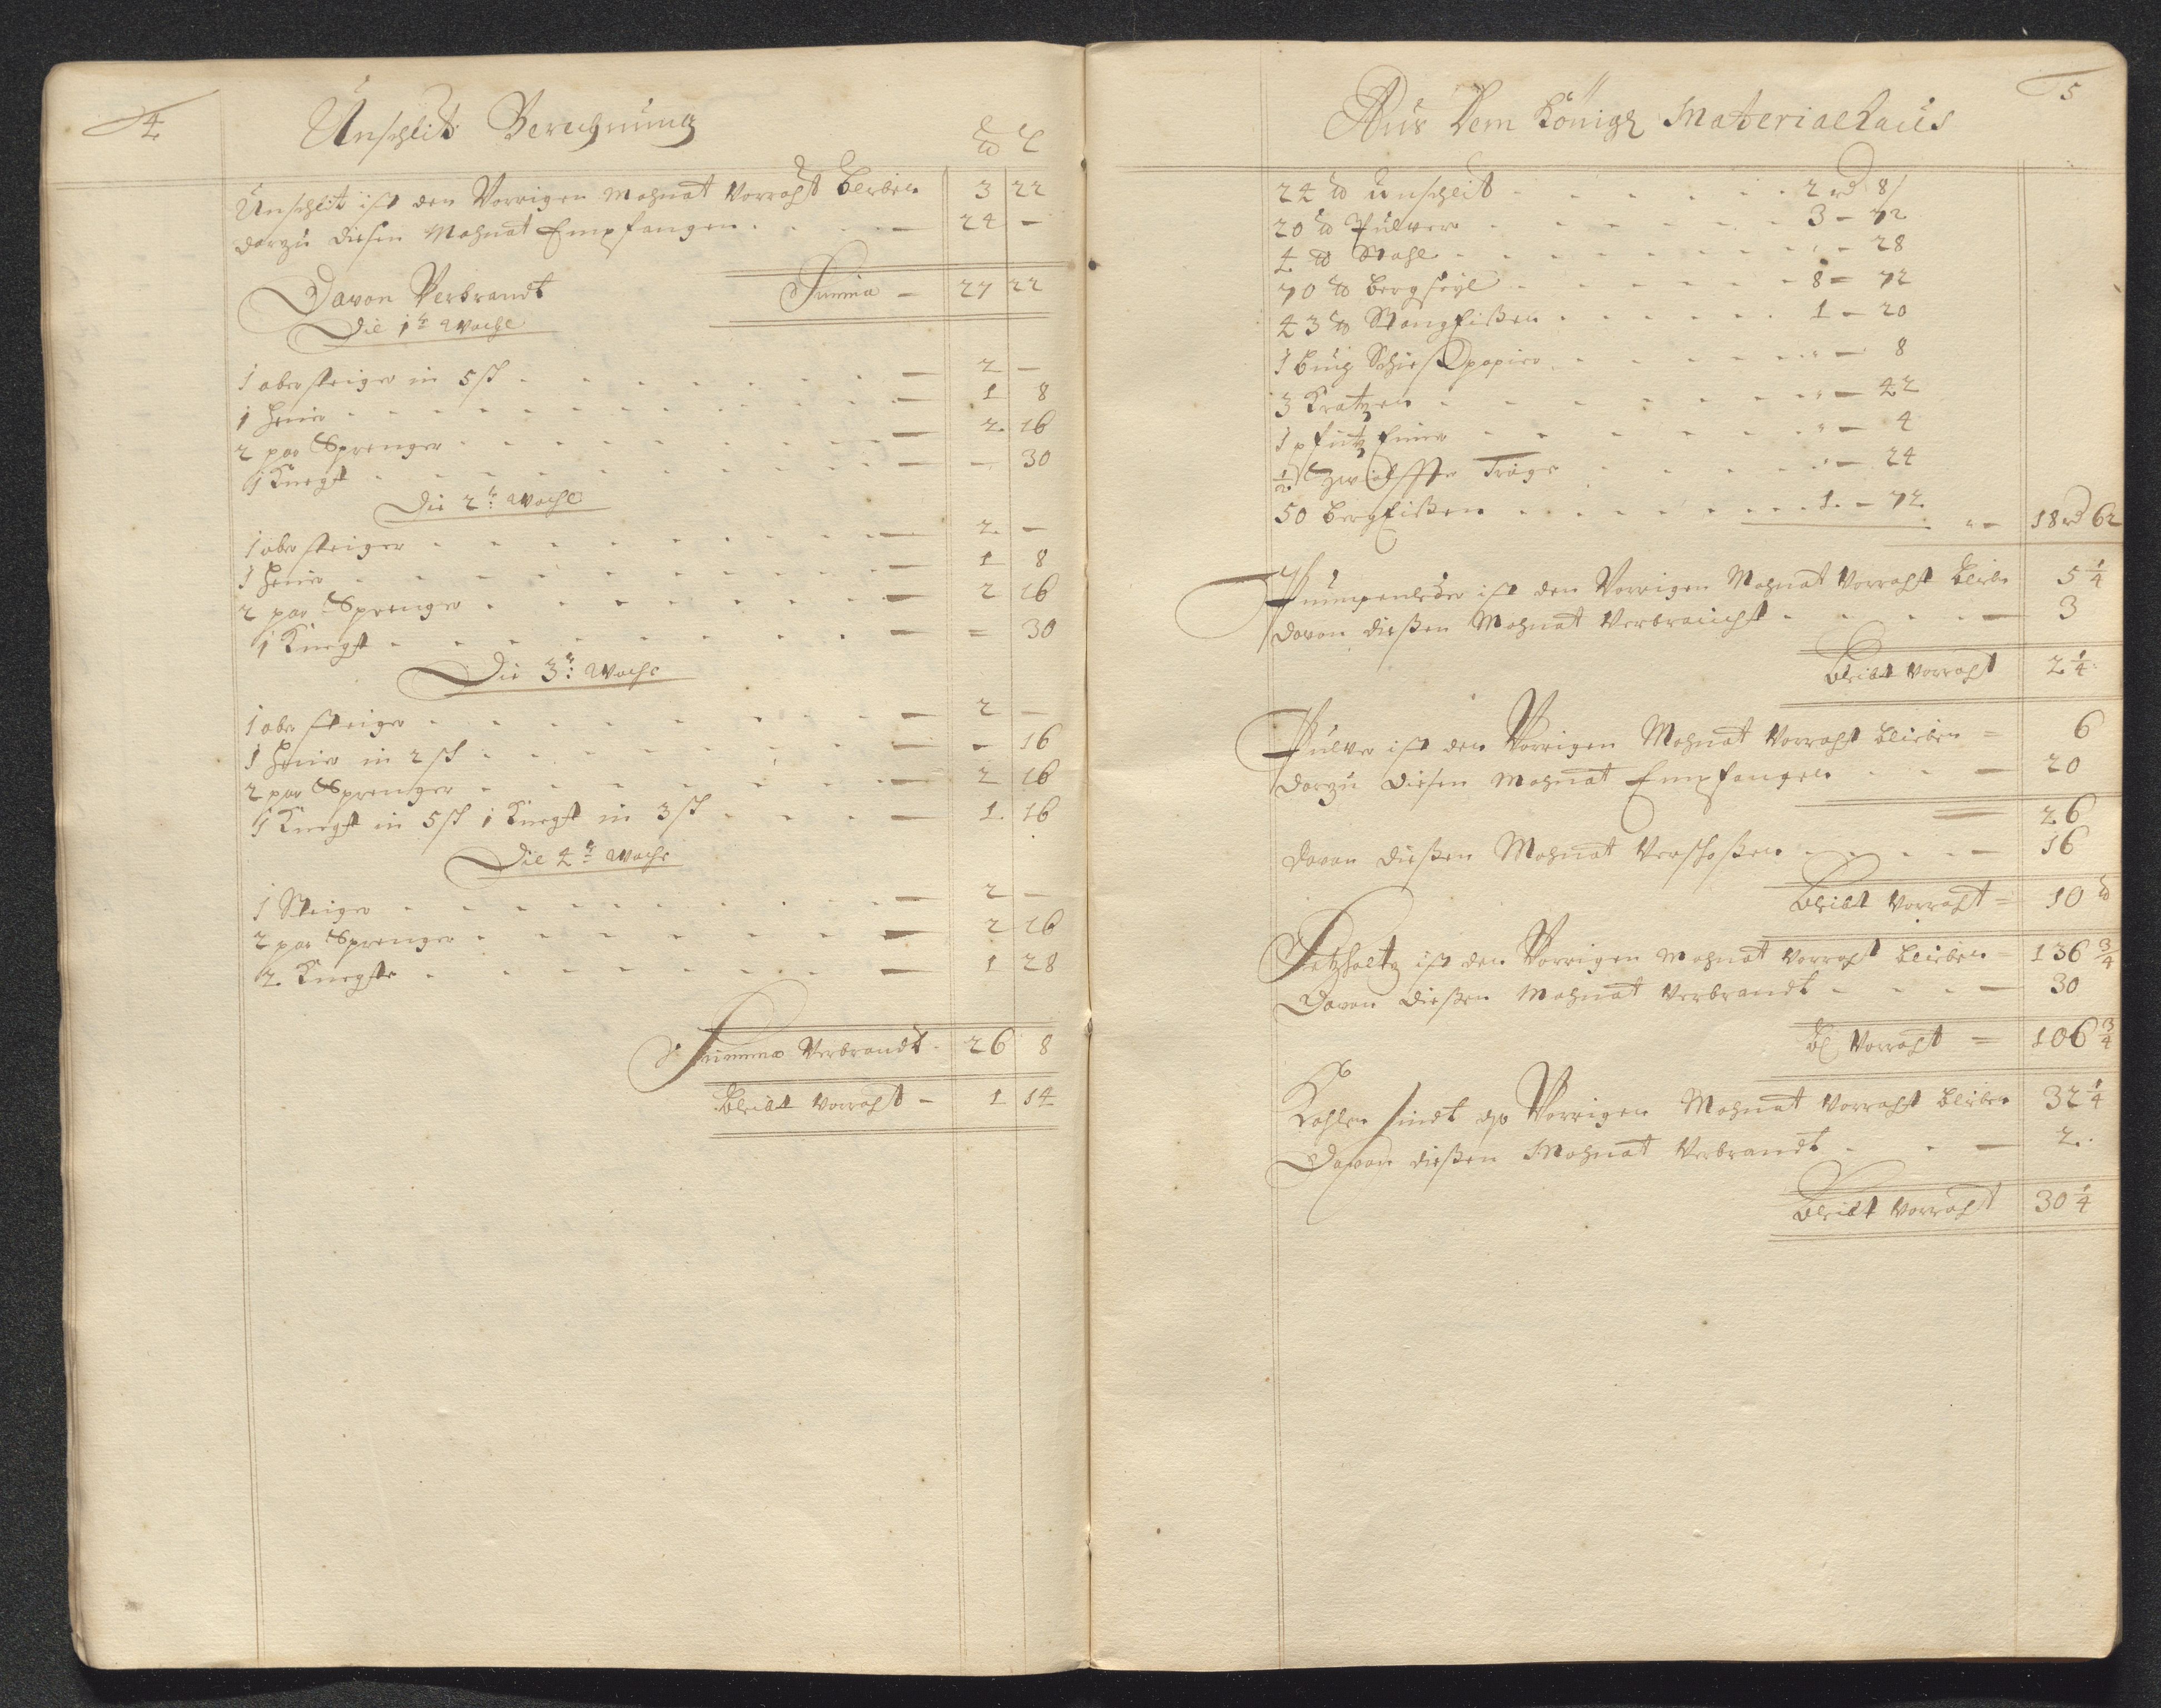 4
Unschlit Berechnung
℔ L
Unschlit ist den Vorrigen Mohnat Vorraht blieben 3 22
darzu diesen Mohnat Empfangen - 24 -
Summa - 27 22
Davon Verbrandt
Die 1te Woche
1 obersteiger in 5 sch - 2 -
1 Heuer - 1 8
2 par Sprenger - 2 16
1 Knecht - - 30
Die 2te Woche
1 obersteiger - 2 -
1 Heuer - 1 8
2 par Sprenger - 2 16
1 Knecht - = 30
Die 3te Woche
1 obersteiger - 2 -
1 Heuer in 2 sch - - 16
2 par Sprenger - 2 16
1 Knecht in 5 sch 1 Knecht in 3 sch - 1 16
Die 4te Woche
1 Steiger - 2 -
2 par Sprenger - 2 16
2 Knechte - 1 28
Summa Verbrandt - 26 8
Bleibt Vorraht - 1 14
5
Aus Dem Königl Materialhaus
24 ℔ Unschlit - 2 rd 8
20 ℔ Pulver - 3 - 72
4 ℔ Stahl - " - 28
70 ℔ Bergseyl - 8 - 72
43 ℔ Stangeißen - 1 - 20
1 buch Schießpapier - " - 8
3 Kratzen - " - 42
1 pfütz Eimer - " - 4
1/2 Zwölffter Tröge - " - 24
50 Bergeißen - 1 - 72
" - 18 rd 62
Pumpenleder ist den Vorrigen Mohnat Vorraht blieben 5 1/4
davon dießen Mohnat Verbraucht - 3
Bleibt Vorraht 2 1/4
Pulver ist den Vorrigen Mohnat Vorraht blieben = 6
darzu diesen Mohnat Empfangen - 20
26
davon dießen Mohnat Verschoßen - 16
Bleibt Vorraht = 10 ℔
Setzholtz ist den Vorrigen Mohnat Vorraht blieben = 136 3/4
Davon dießen Mohnat Verbrandt - 30
Bl Vorraht = 106 3/4
Kohlen sindt des Vorrigen Mohnat Vorraht blieben 32 1/4
Davon dießen Mohnat Verbrandt - 2
Bleibt Vorraht 30 1/4